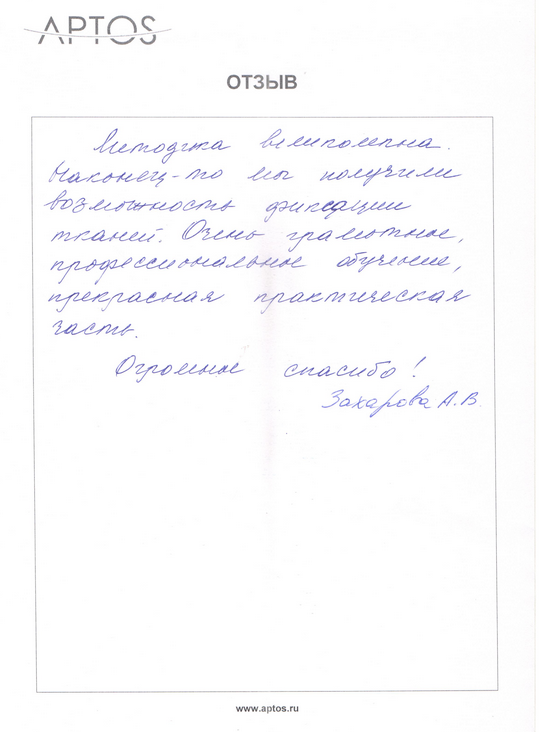 APTOS
ОТЗЫВ
Методика великолепна.
Наконец-то мы получили
возможность фиксации
тканей. Очень грамотное,
профессиональное обучение,
прекрасная практическая
часть.
Огромное спасибо!
Захарова А.В.
www.aptos.ru